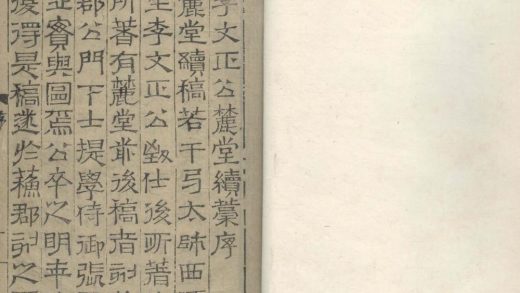 李文正公麓堂續藁序
麓堂續稿若干弓太師西
李文正公致仕後所著
所著有麓堂歬後稿者刻
郡公門下士提學侍御張
賓與圖焉公卒之明年
復得是稿遂於蘇郡刻之